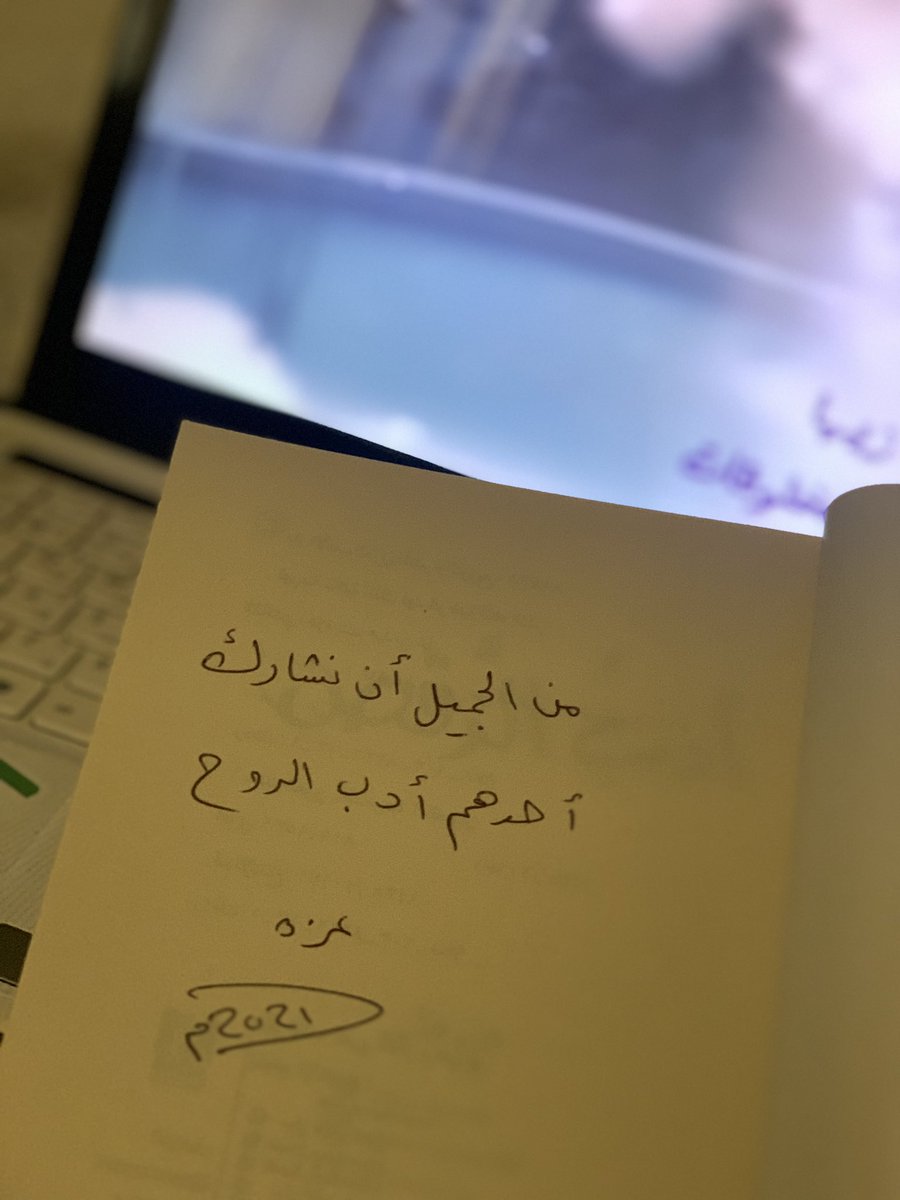 من الجميل أن نشارك
أحدهم أدب الروح
عزه
2021م